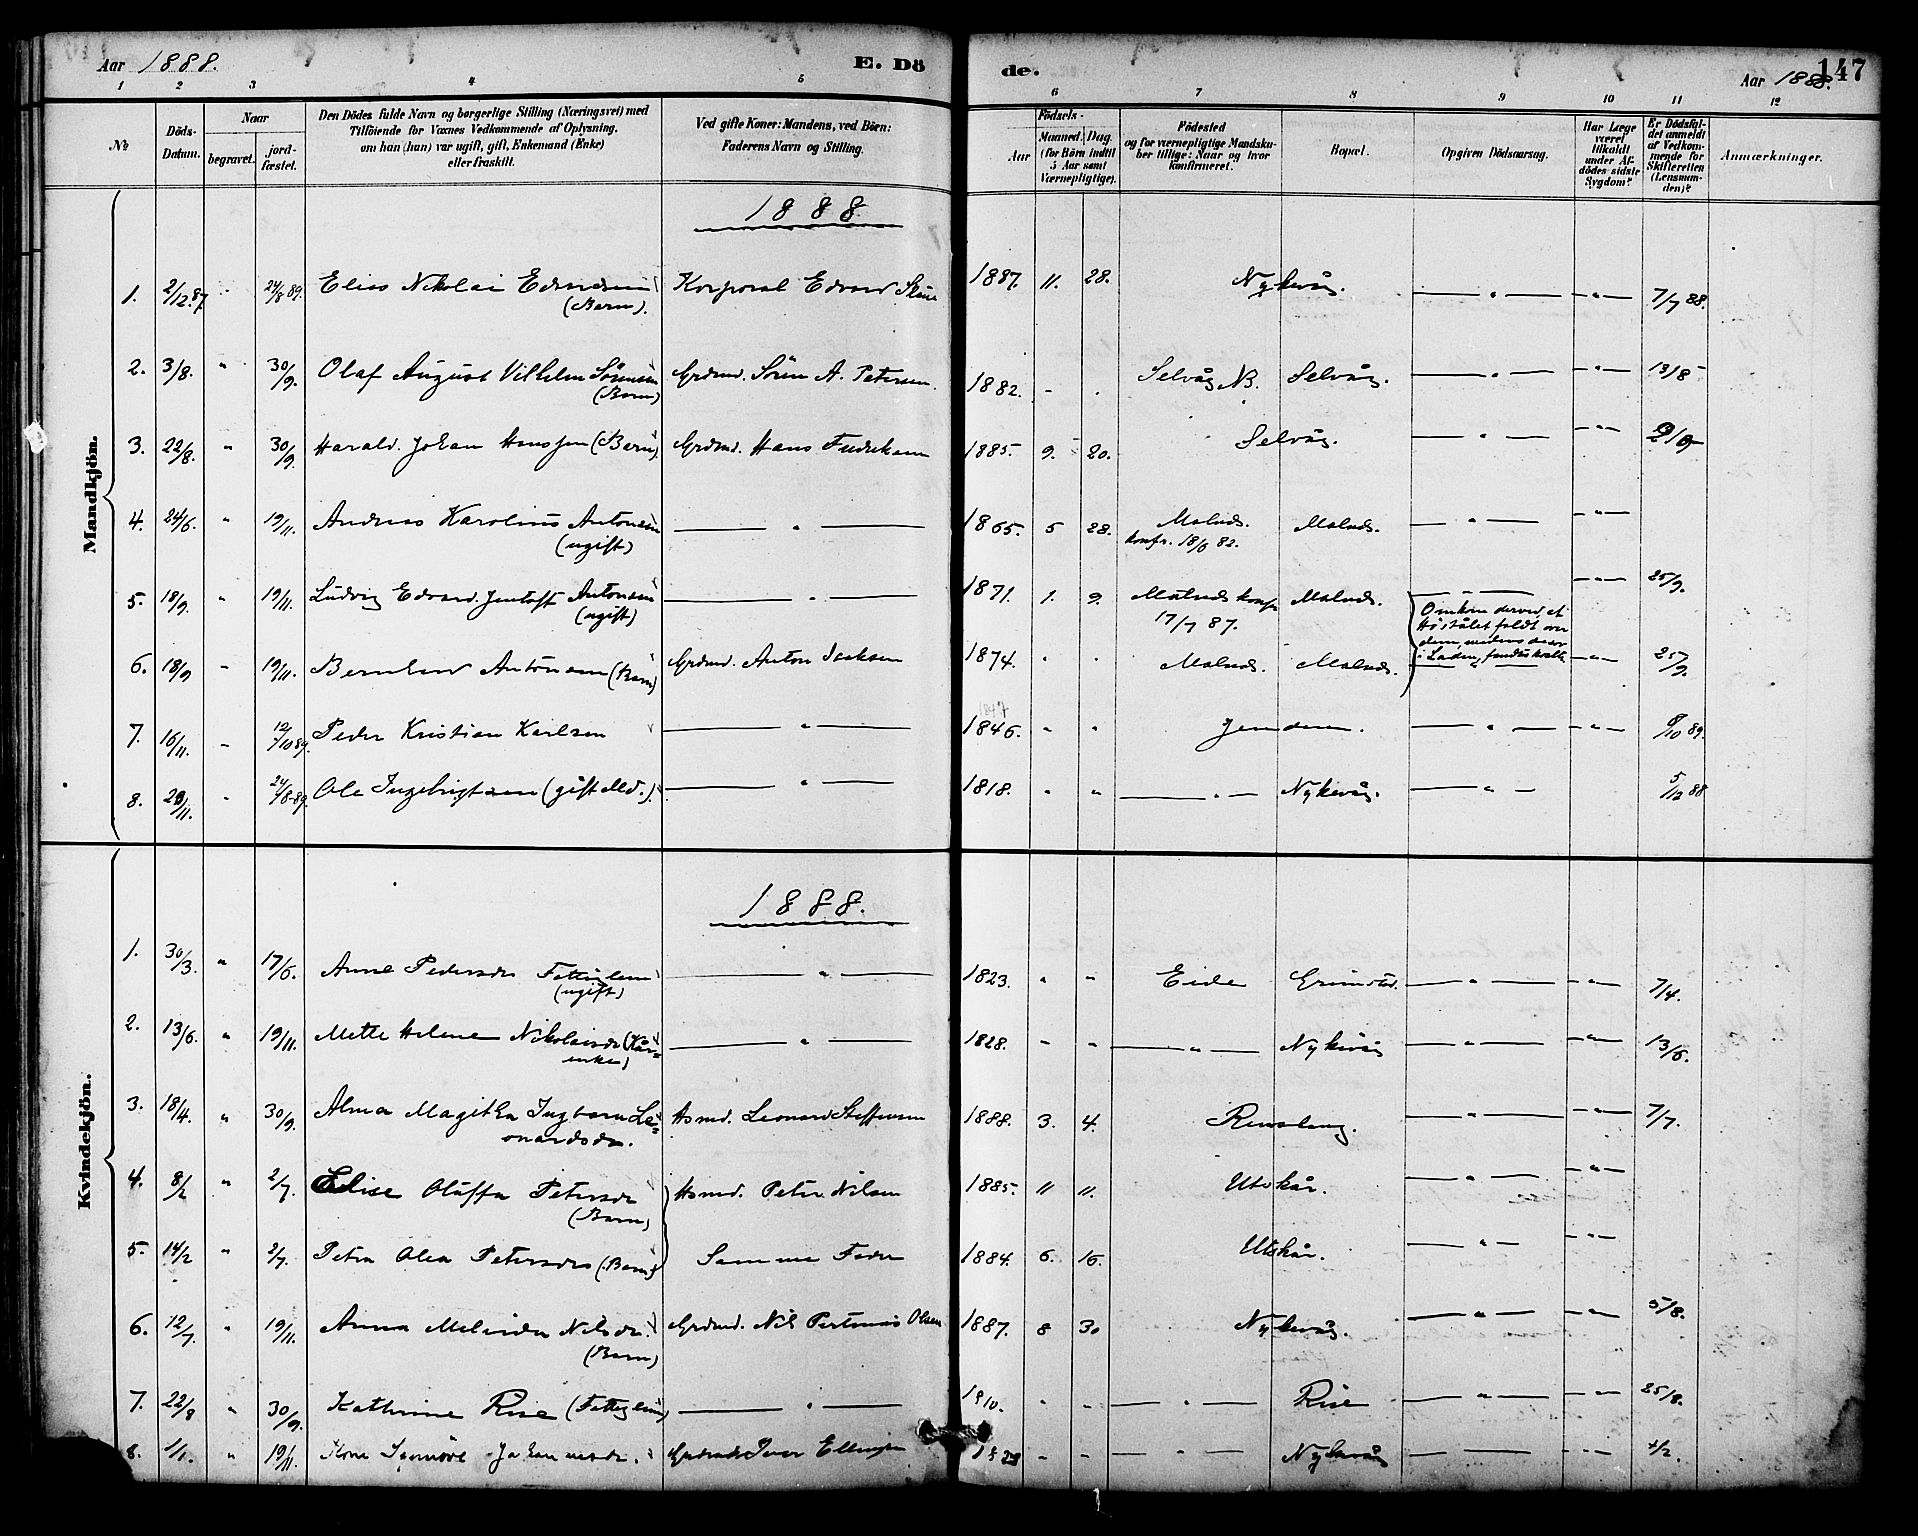 Aar 1888.
E. Dö
de.
147
Aar 1888.
1 2 3 4 5 6 7 8 9 10 11 12
№
Döds-Datum.
Naar
begravet.
jord-fæstet.
Den Dödes fulde Navn og borgerlige Stilling (Næringsvei) med
Tilföiende for Voxnes Vedkommende af Oplysning,
om han (hun) var ugift, gift, Enkemand (Enke)
eller fraskilt.
Ved gifte Koner: Mandens, ved Börn:
Faderens Navn og Stilling.
Födsels-
Aar
Maaned.
Dag.
(for Börn indtil
5 Aar samt
Værnepligtige).
Födested
og for værnepligtige Mandsku-
ber tillige: Naar og hvor
konfirmeret.
Bopæl.
Opgiven Dödsaarsag.
Har Læge
været
tilkaldt
under Af-
dödes sidste
Sygdom?
Er Dödsfal-
det anmeldt
af Vedkom-
mende for
Skifteretten
(Lensman-
den)?
Anmærkninger.
Mandkjön.
1888.
1. 2/12 87. " 24/8 89. Elias Nikolai Edvardsen (Barn). Korporal Edvard 1887. 11. 28. Nykvåg. — " — — " — 7/7 88.
2. 3/8. " 30/9. Olaf August Vilhelm Sörensen (Barn) Grdmd. Sören A. Petersen. 1882. - . Selvåg N.B. Selvåg. — " — — " — 13/8
3. 22/8. " 30/9. Harald Johan Hanssen (Barn) Grdmd. Hans Fredriksen 1885. 9. 20. Selvåg. — " — — " —
4. 24/6. " 19/11. Andreas Karolius Antonsen (ugift) — " — 1865. 5 28. Malnes. konfr. 18/6 82. Malnes. — " — — " —
5. 18/9. " 19/11. Ludvig Edvard Jentoft Antonsen (ugift) — " — 1871. 1. 9. Malnes konfr. 17/7 87. Malnes. — " — — " — 25/9.
Omkom derved at
Höstålet faldt over
dem, medens de var
i Laden,
6. 18/9 " 19/11. Bernhard Antonsen (Barn) Grdmd. Anton Isaksen 1874. . . Malnes. Malnes. — " — — " — 25/9.
7. 16/11. " 12/10 89. Peder Kristian Karlsen — " — 1846. " " — " — — " — 9/10 89.
8. 20/11. " 24/8 89. Ole Ingebrigtsen (gift Md.). — " — 1818. " " — " — Nykvåg. — " — 5/12 88
Kvindekjön.
1888.
1. 30/3. " 17/6. Anne Pedersdr. Fattiglem (ugift) — " — 1823. " " Eide Grimstad. — " — — " — 7/4.
2. 13/6. " 19/11. Mette Helene Nikolaisdr. (Kår=
enke) — " — 1828. " " — " — Nykvåg — " — — " — 13/6.
3. 18/4. " 30/9. Alma Magitha Ingbora Le=
onardsdr. Hsmd. Leonard Steffensen 1888. 3. 4. — " — — " — 7/7.
4. 8/2 " 2/7. Elise Oluffa Petersdr. (Barn) Hsmd. Peter Nilsen 1885. 11 11. Utskår. — " — — " —
5. 14/2 " 2/7. Petra Olea Petersdr. (Barn) Samme Fader 1884. 6. 16. Utskår. — " — — " —
6. 12/7. " 19/11. Anna Melinda Nilsdr. (Barn) Grdmd. Nils Pertinius Olsen 1887. 8 30 Nykvåg. — " — — " — 5/8.
7. 22/8 " 30/9. Kathrine Rise (Fattiglem) — " — 1810. " " — " — Rise — " — — " — 25/8.
8. 1/1. " 19/11. Kone Johannesdr. Iver Ellingsen " " — " — Nykvåg — " — — " — 4/2.